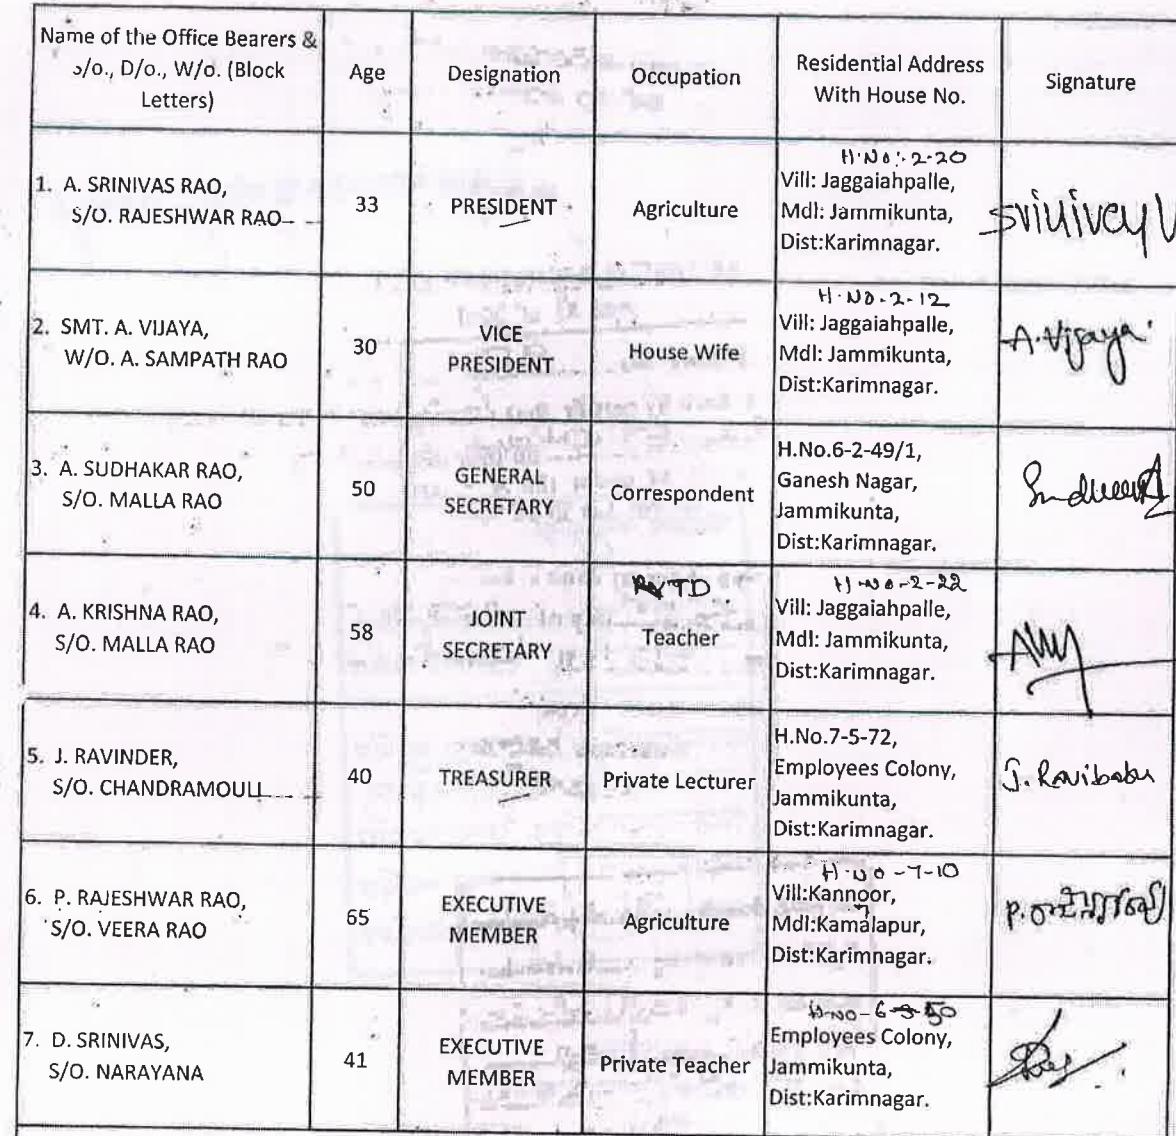 Name of the Office Bearers &
s/o., D/o., W/o. (Block
Letters)
Age
Designation
Occupation
Residential Address
With House No.
Signature
1. A. SRINIVAS RAO,
S/O. RAJESHWAR RAO
33
PRESIDENT
Agriculture
H.No:-2-20
Vill: Jaggaiahpalle,
Mdl: Jammikunta,
Dist:Karimnagar.
2. SMT. A. VIJAYA,
W/O. A. SAMPATH RAO
30
VICE
PRESIDENT
House Wife
H.NO-2-12
Vill: Jaggaiahpalle,
Mdl: Jammikunta,
Dist:Karimnagar.
A.Vijaya
3. A. SUDHAKAR RAO,
S/O. MALLA RAO
50
GENERAL
SECRETARY
Correspondent
H.No.6-2-49/1,
Ganesh Nagar,
Jammikunta,
Dist:Karimnagar.
4. A. KRISHNA RAO,
S/O. MALLA RAO
58
JOINT
SECRETARY
Teacher
H-No-2-22
Vill: Jaggaiahpalle,
Mdl: Jammikunta,
Dist:Karimnagar.
5. J. RAVINDER,
S/O. CHANDRAMOULI
40
TREASURER
Private Lecturer
H.No.7-5-72,
Employees Colony,
Jammikunta,
Dist:Karimnagar.
J. Ravibabu
6. P. RAJESHWAR RAO,
S/O. VEERA RAO
65
EXECUTIVE
MEMBER
Agriculture
H-No-7-10
Vill:Kannoor,
Mdl:Kamalapur,
Dist:Karimnagar.
7. D. SRINIVAS,
S/O. NARAYANA
41
EXECUTIVE
MEMBER
Private Teacher
Employees Colony,
Jammikunta,
Dist:Karimnagar.